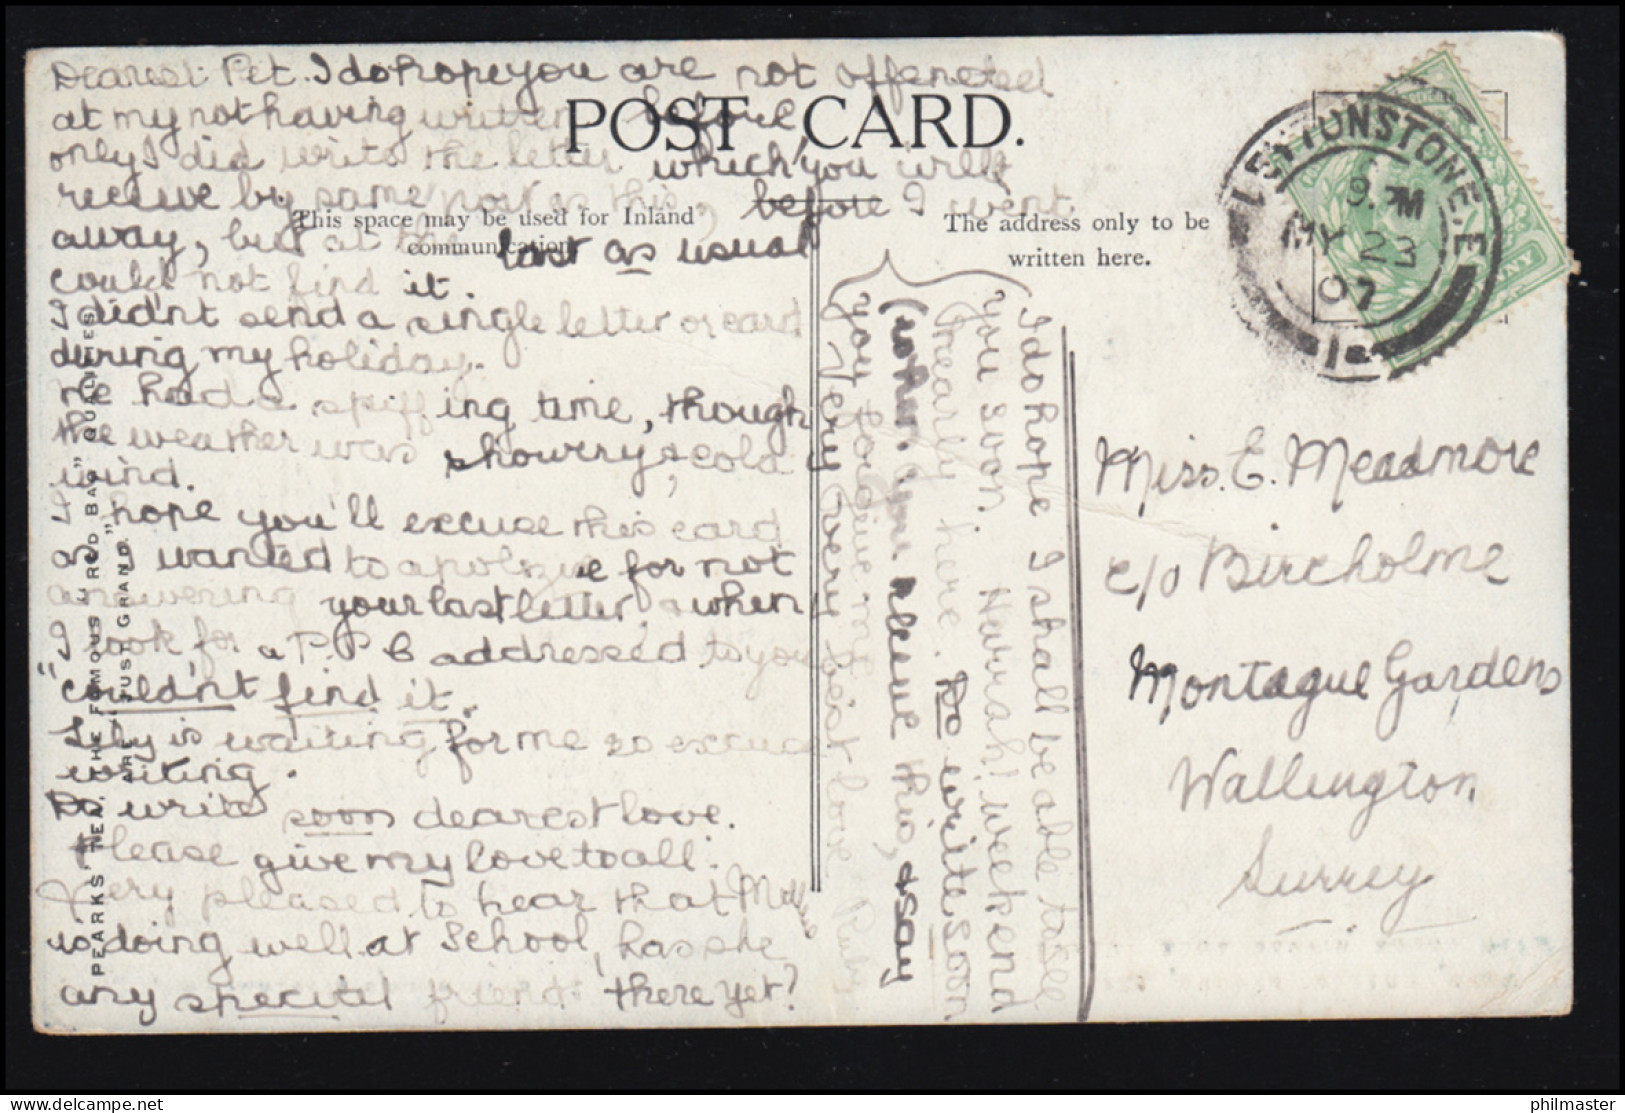 Dearest Pet. I do hope you are not offended
at my not having written before,
only I did write the letter which you will
receive by same post as this, before I went
away, but at the last as usual
could not find it.
I didn't send a single letter or card
during my holiday.
We had a spiffing time, though
the weather was showery & cold
wind.
I hope you'll excuse this card
as I wanted to apologize for not
answering your last letter, & when
I look for a P.P.C addressed to you
"couldn't find it.
Lily is waiting for me so excuse
writing.
Do write soon dearest love.
Please give my love to all.
Very pleased to hear that
is doing well at School, has she
any special friend there yet?
POST CARD.
This space may be used for Inland
communication.
The address only to be
written here.
SPEARKS' TEA, THE FAMOUS "RED BAG" QUALITIES
ARE "JUST GRAND."
I do hope I shall be able to see
you soon. Hurrah! week end
nearly here. Do write soon
(when you receive this, & say
you forgive me
Very very best love Ruby
LEYTONSTONE. E
9. PM
MY 23
07
Miss. E. Meadmore
c/o Bircholme
Montague Gardens
Wallington
Surrey
philmaster